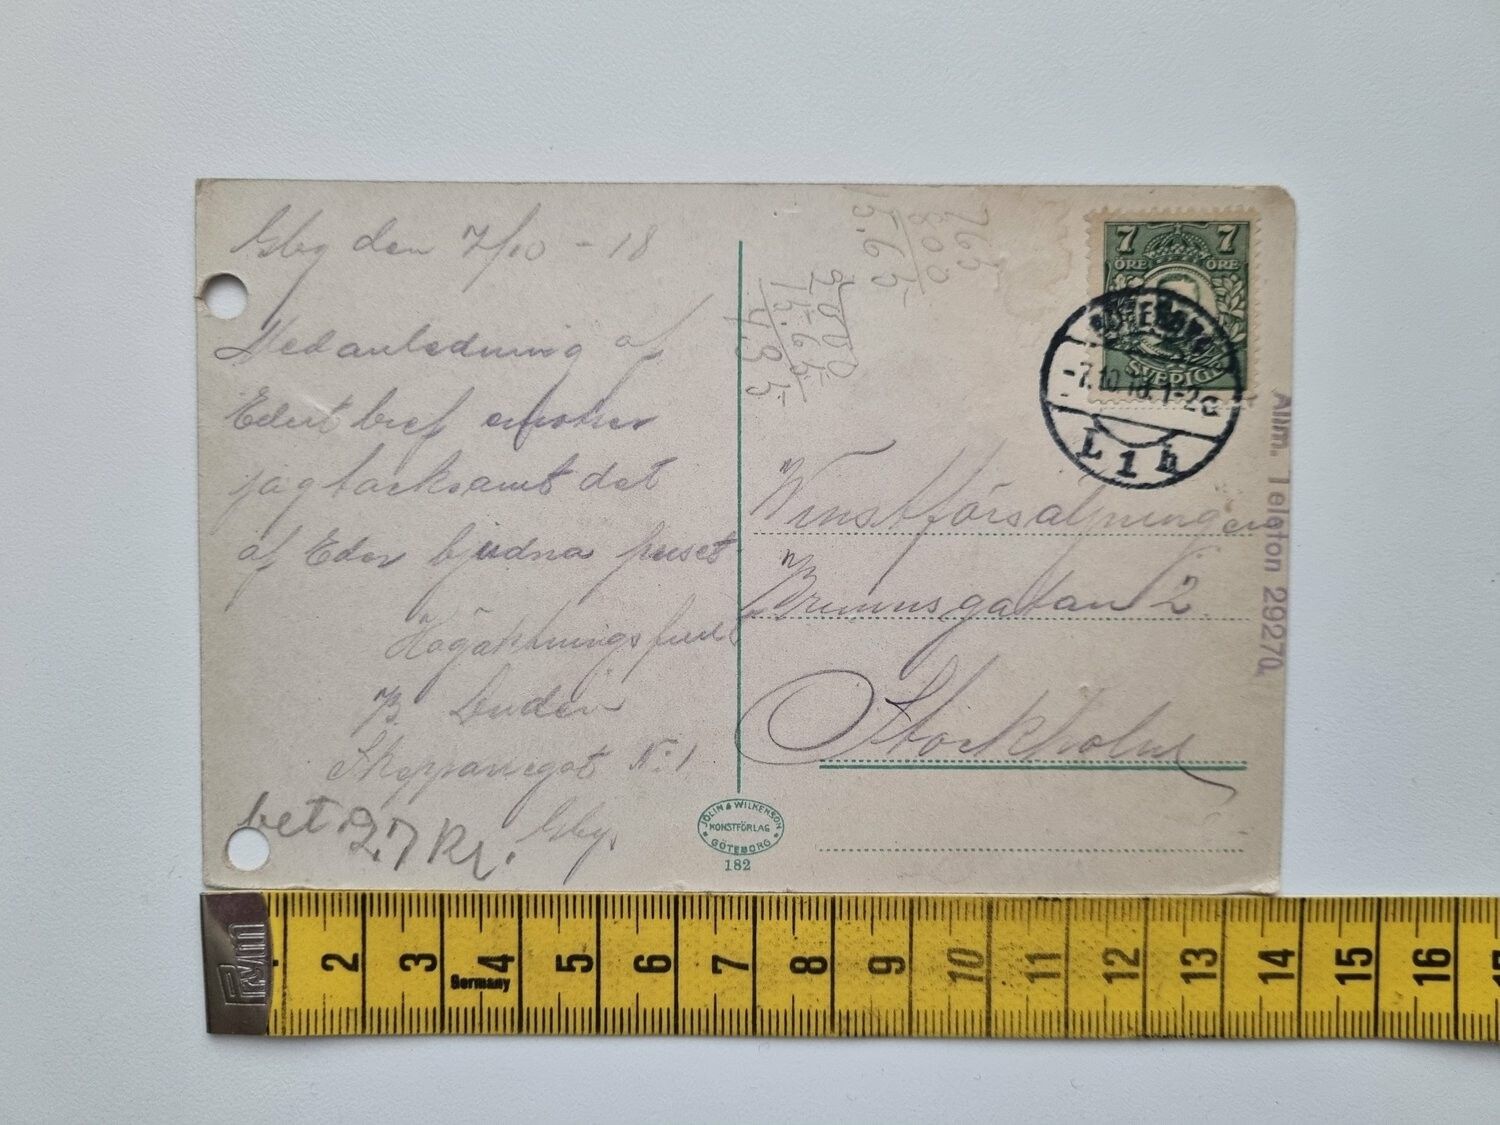 Gbg den 7/10 - 18
Med anledning af
Edert bref emotser
jag tacksamt det
af Eder bjudna priset
Högaktningsfullt
B. Lundén
Skeppareget N:1
Gbg.
bet 27 Kr.
765
800
15.65
2000
15.65
4.35
7 7
ÖRE ÖRE
SVERIGE
GÖTEBORG
-7.10.18.1-2
L 1 h
Allm. Telefon 29270.
Vinstförsäljningen
Brunnsgatan 2
Stockholm
JOLIN & WILKENSON
KONSTFÖRLAG
GÖTEBORG
182
Prym
1 2 3 4 5 6 7 8 9 10 11 12 13 14 15 16 17
Germany